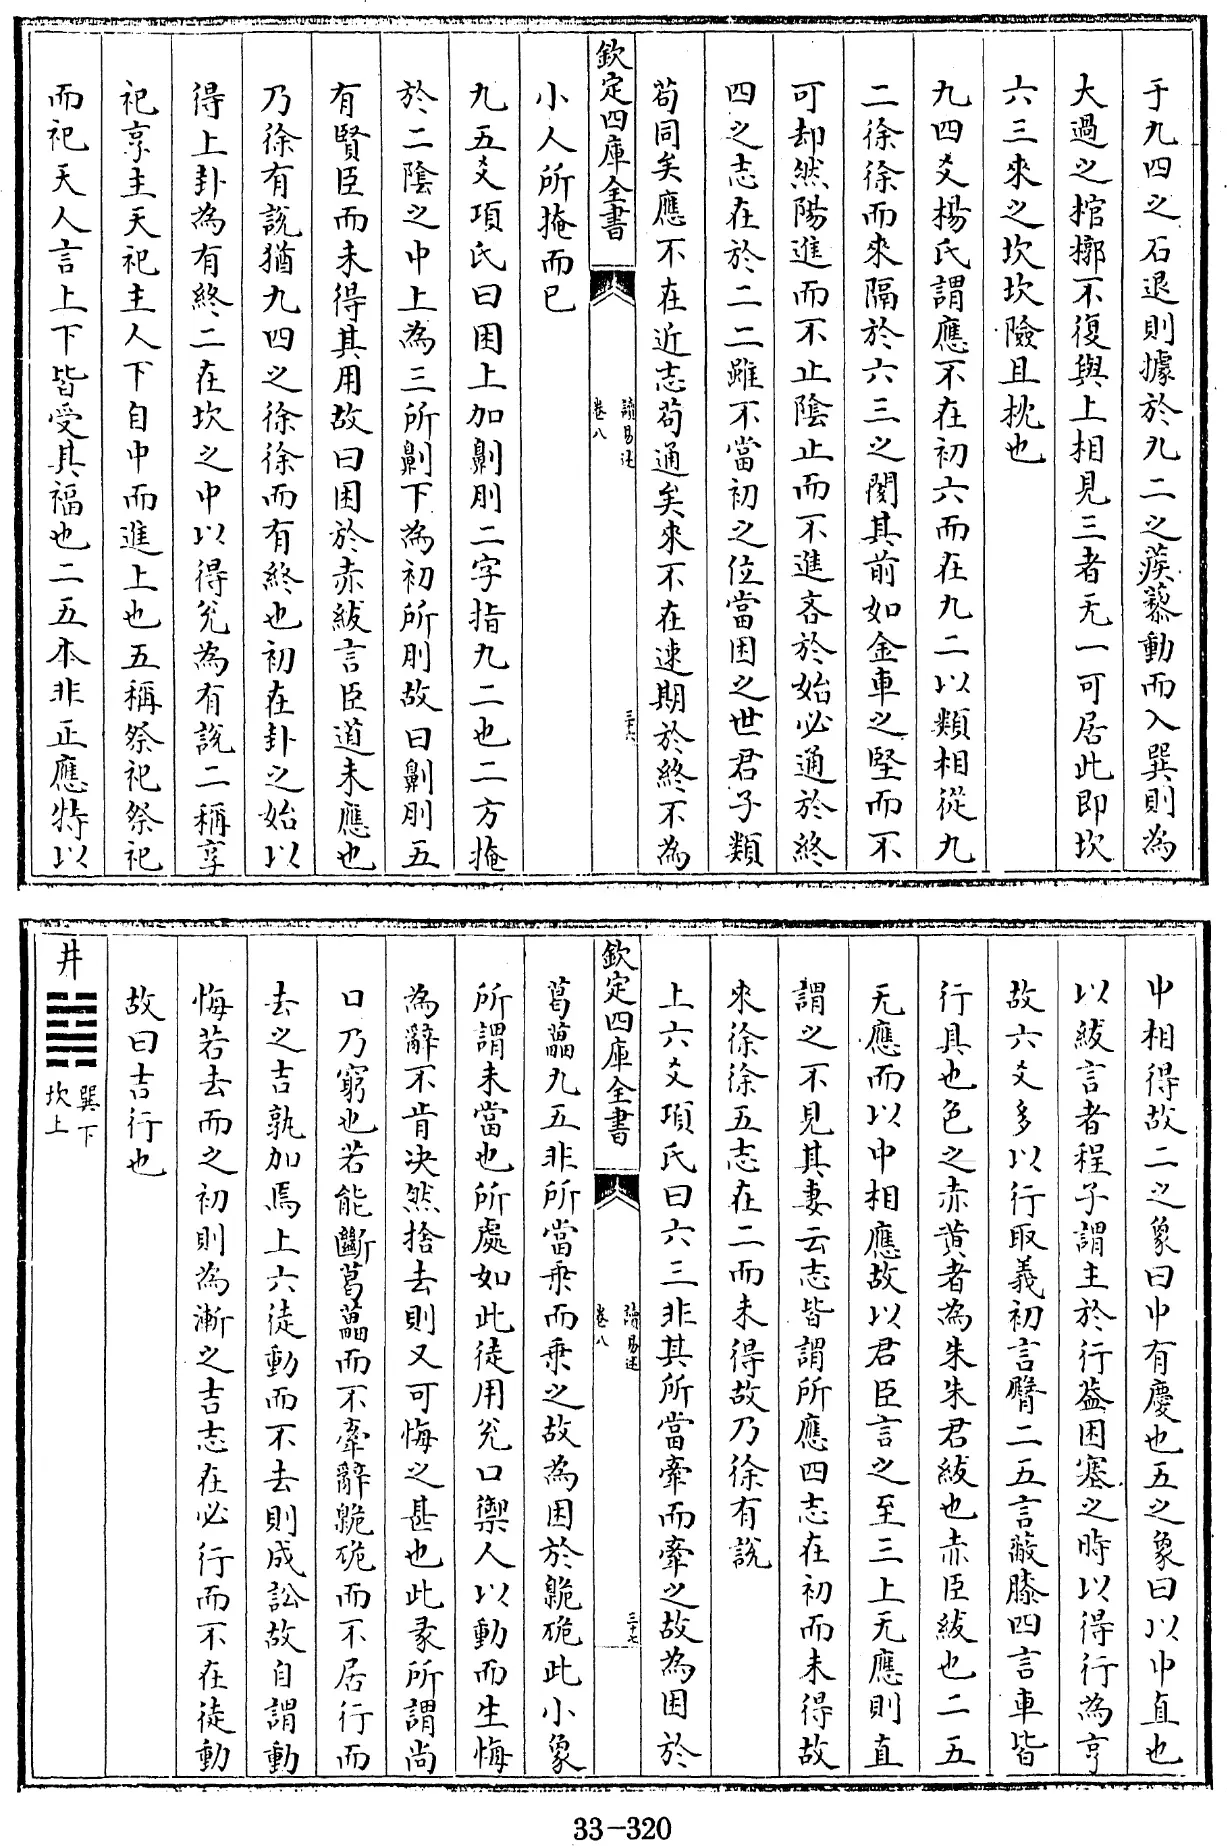 于九四之石退則據於九二之蒺藜動而入巽則為
大過之棺槨不復與上相見三者无一可居此即坎
六三來之坎坎險且枕也
九四爻楊氏謂應不在初六而在九二以類相從九
二徐徐而來隔於六三之閡其前如金車之堅而不
可却然陽進而不止陰止而不進吝於始必通於終
四之志在於二二雖不當初之位當困之世君子類
茍同矣應不在近志茍通矣來不在速期於終不為
欽定四庫全書
讀易述
卷八
三十六
小人所掩而已
九五爻項氏曰困上加劓刖二字指九二也二方掩
於二陰之中上為三所劓下為初所刖故曰劓刖五
有賢臣而未得其用故曰困於赤紱言臣道未應也
乃徐有說猶九四之徐徐而有終也初在卦之始以
得上卦為有終二在坎之中以得兌為有說二稱享
祀享主天祀主人下自中而進上也五稱祭祀祭祀
而祀天人言上下皆受其福也二五本非正應特以
中相得故二之象曰中有慶也五之象曰以中直也
以紱言者程子謂主於行葢困塞之時以得行為亨
故六爻多以行取義初言臀二五言蔽膝四言車皆
行具也色之赤黄者為朱朱君紱也赤臣紱也二五
无應而以中相應故以君臣言之至三上无應則直
謂之不見其妻云志皆謂所應四志在初而未得故
來徐徐五志在二而未得故乃徐有說
上六爻項氏曰六三非其所當牽而牽之故為困於
欽定四庫全書
讀易述
卷八
三十七
葛藟九五非所當乗而乗之故為困於臲卼此小象
所謂未當也所處如此徒用兌口禦人以動而生悔
為辭不肯決然捨去則又可悔之甚也此彖所謂尚
口乃窮也若能斷葛藟而不牽辭臲卼而不居行而
去之吉孰加焉上六徒動而不去則成訟故自謂動
悔若去而之初則為漸之吉志在必行而不在徒動
故曰吉行也
井
巽下
坎上
33-320